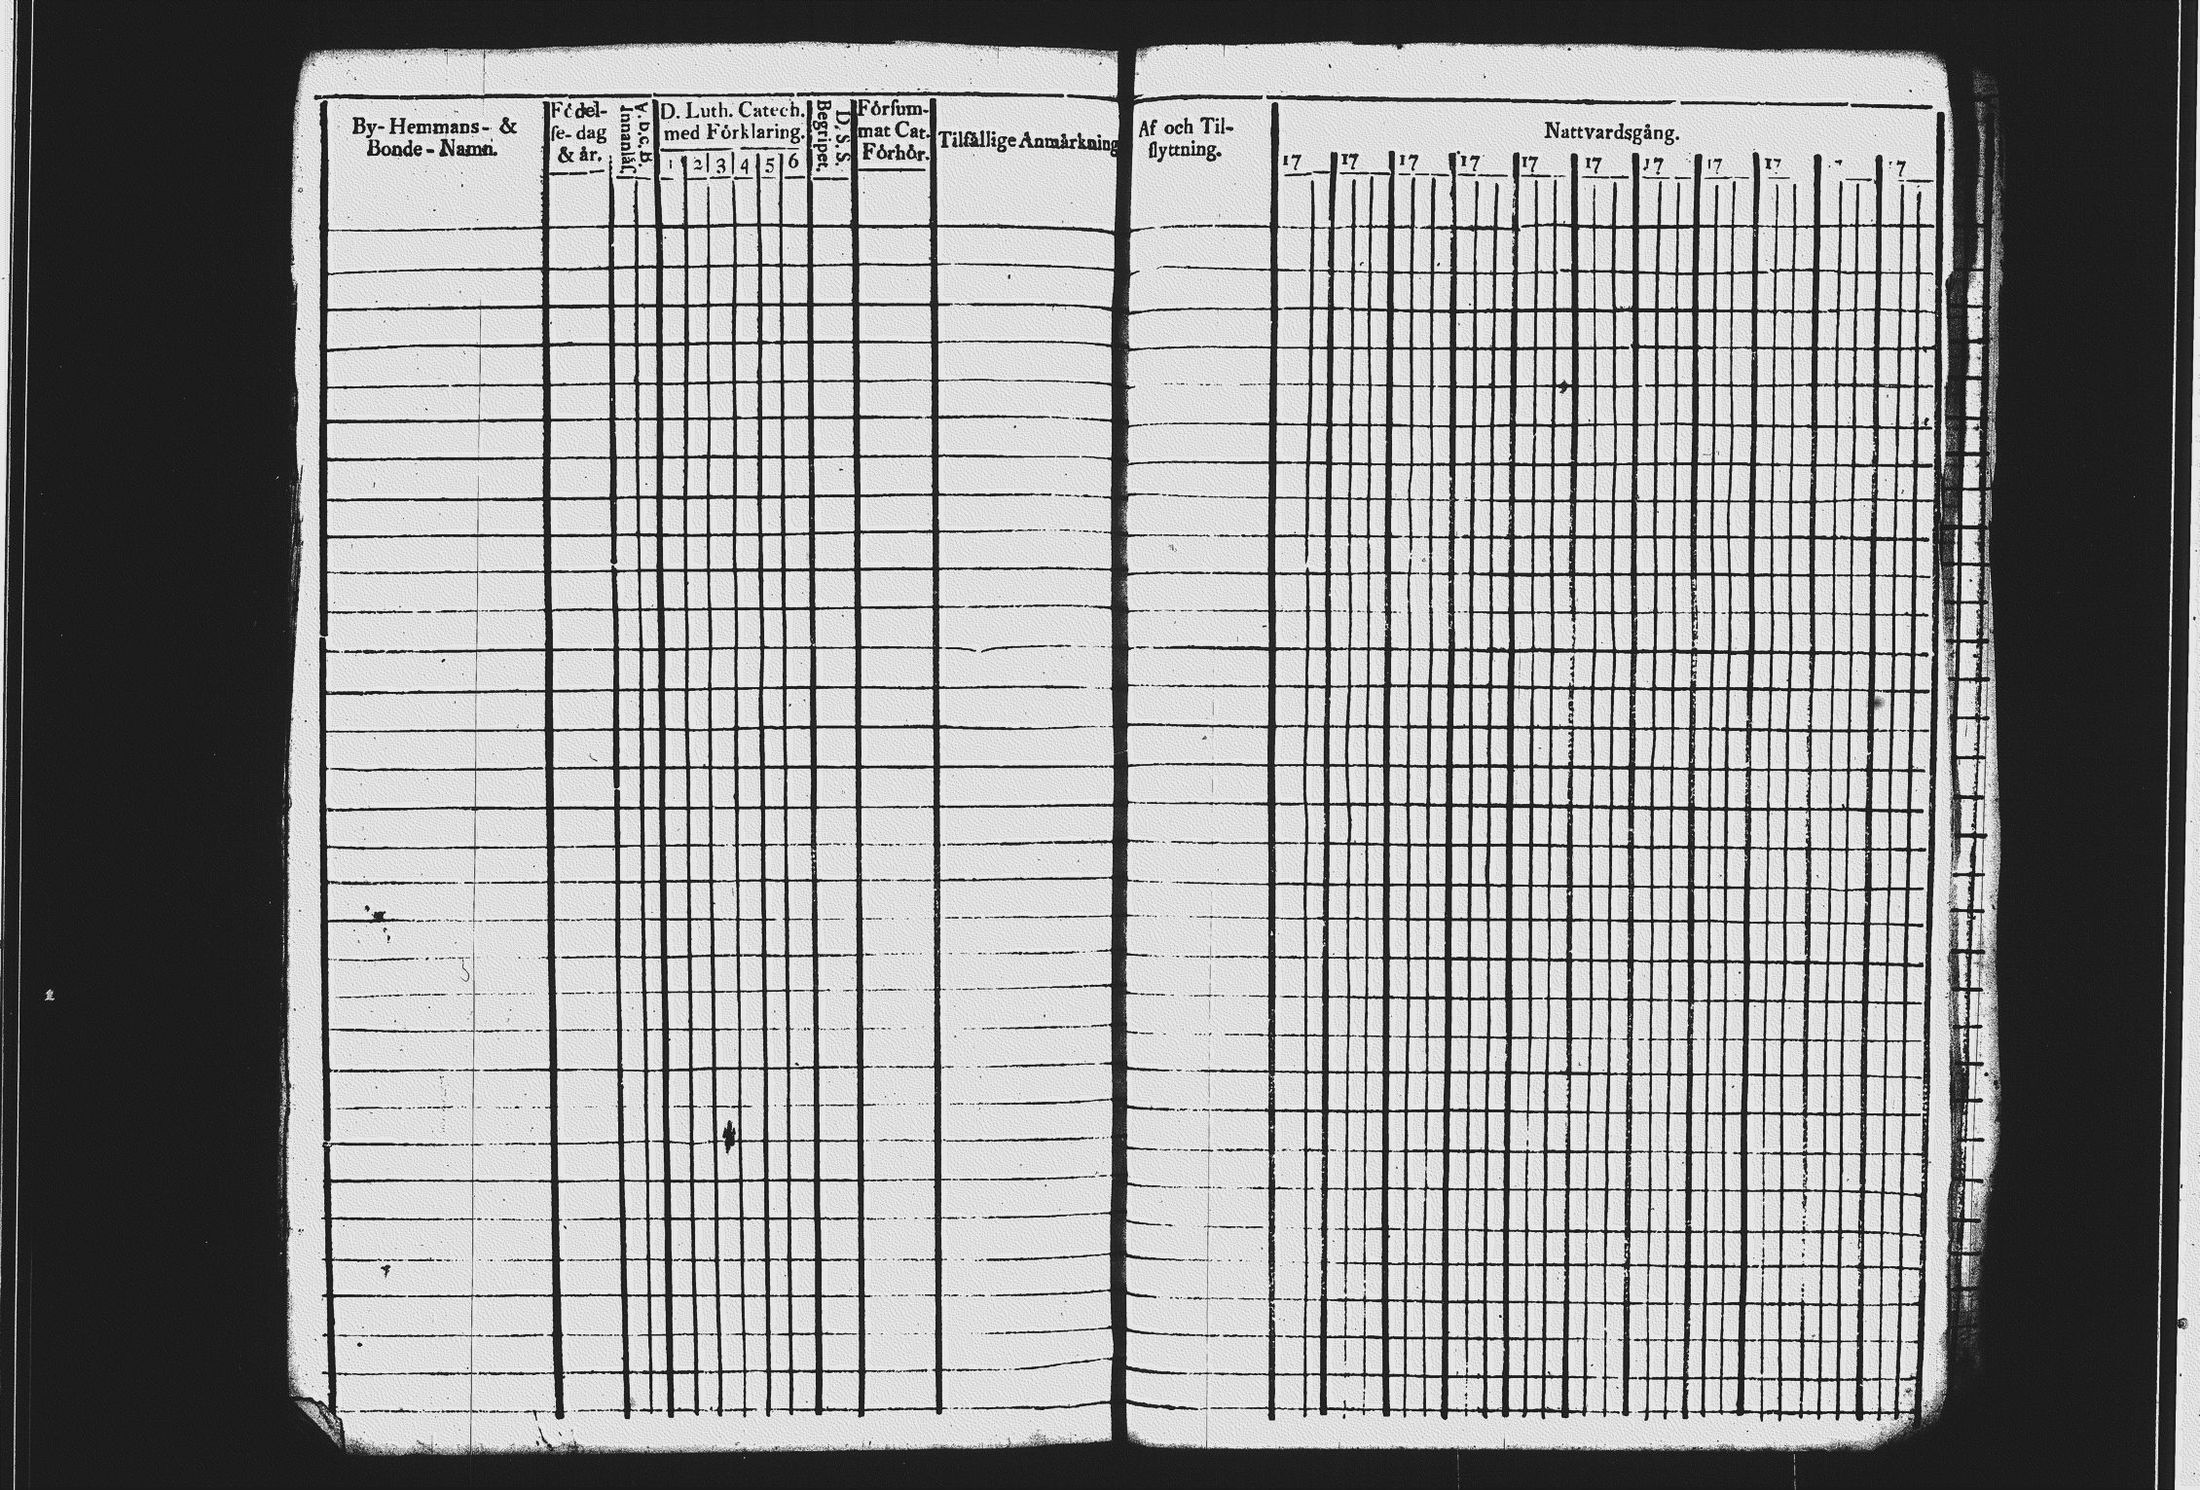 By- Hemmans- &
Bonde - Namn.
Födel-
ſe- dag
& år.
Innanläſ.
A. b. c. B.
D. Luth. Catech.
med Förklaring.
1 2 3 4 5 6
Begripet.
D. S. S.
Förſum-
mat Cat.
Förhör.
Tilfällige Anmärkning
Af och Til-
flyttning.
Nattvardsgång.
17 17 17 17 17 17 17 17 17 7